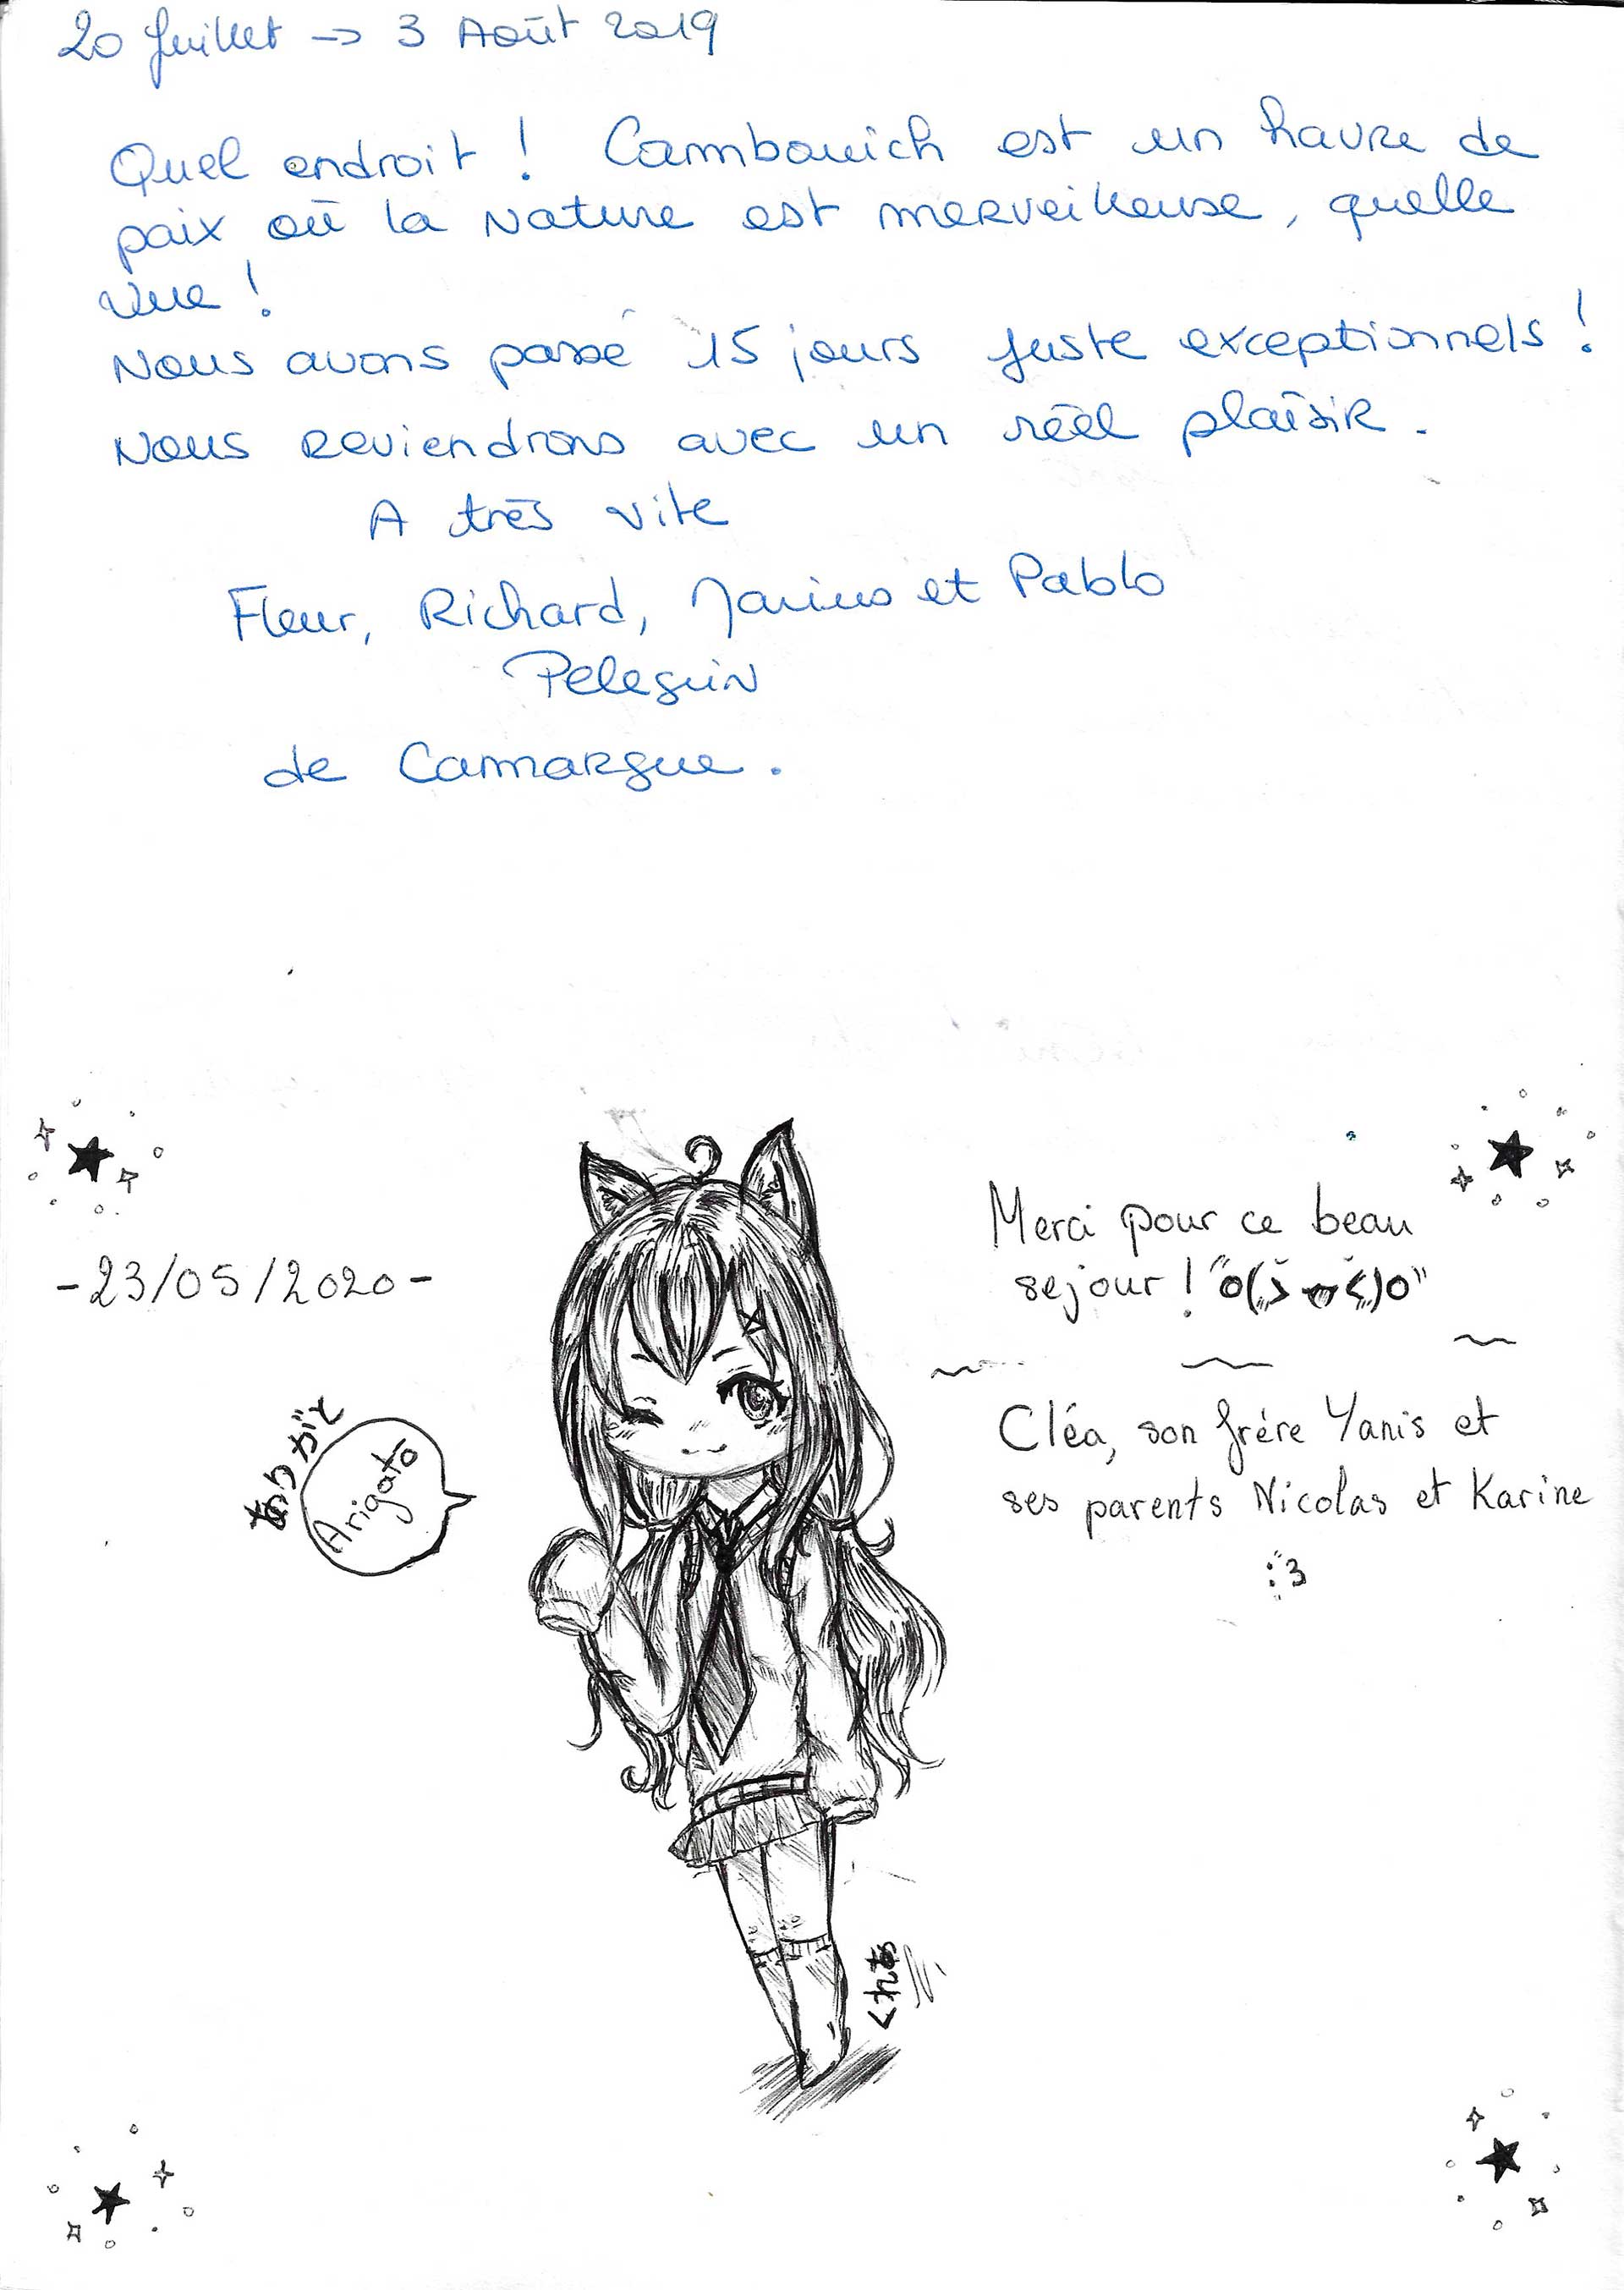 20 Juillet → 3 Août 2019
Quel endroit ! Cambouich est un havre de
paix où la Nature est merveilleuse, quelle
vue !
Nous avons passé 15 jours juste exceptionnels !
Nous reviendrons avec un réel plaisir.
A très vite
Fleur, Richard, Marius et Pablo
Peleguin
de Camargue.
-23/05/2020-
Merci pour ce beau
sejour !
ありがと
Arigato
Cléa, son frére Yanis et
ses parents Nicolas et Karine
:3
くれあ